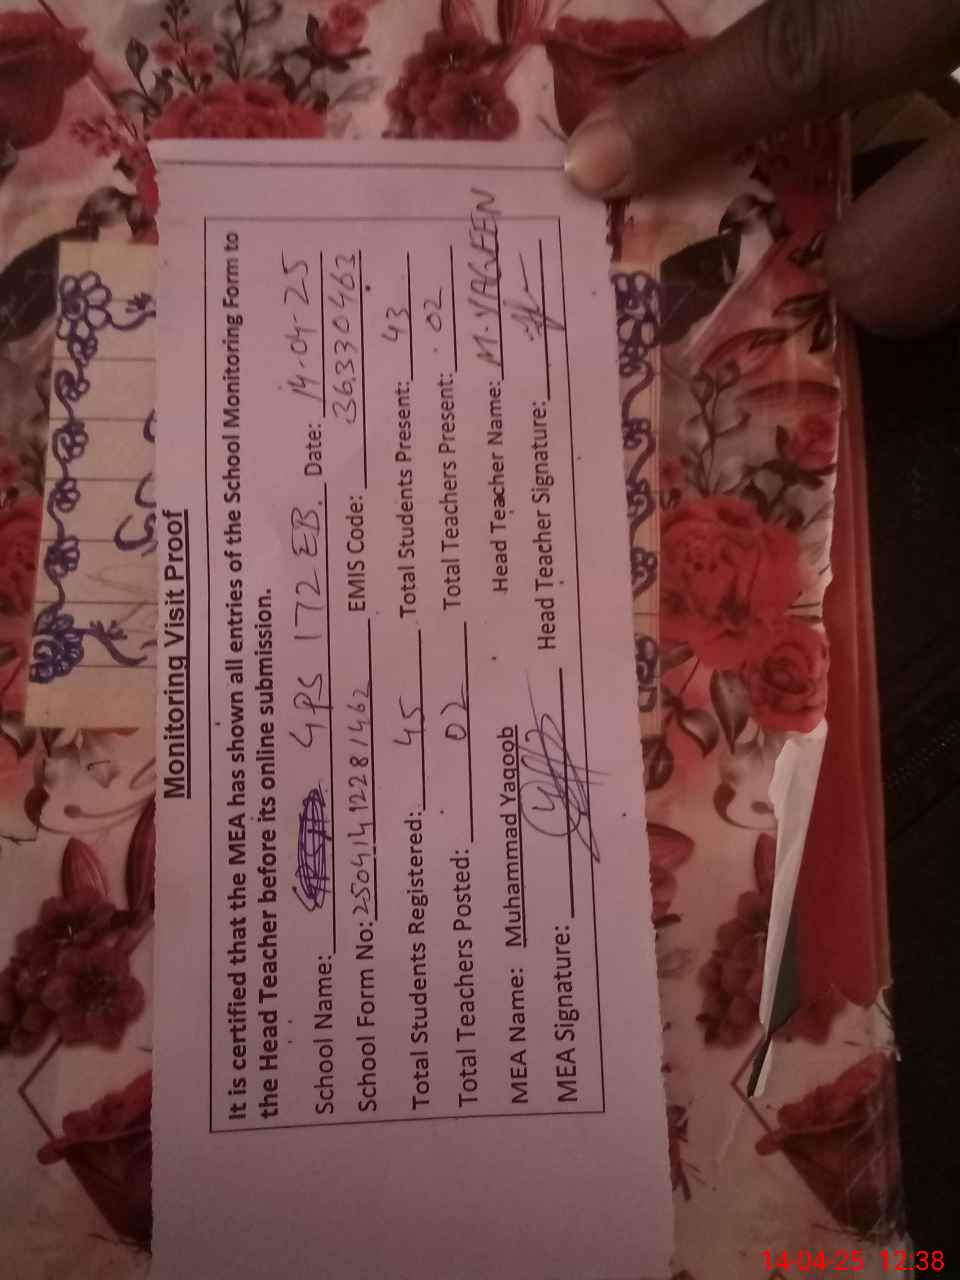 Monitoring Visit Proof
It is certified that the MEA has shown all entries of the School Monitoring Form to
the Head Teacher before its online submission.
School Name: GPS 172 EB. Date: 14-04-25
School Form No: 25041412281462 EMIS Code: 36330463
Total Students Registered: 45 Total Students Present: 43
Total Teachers Posted: 02 Total Teachers Present: 02
MEA Name: Muhammad Yaqoob Head Teacher Name: M. YAQEEN
MEA Signature: Head Teacher Signature:
14-04-25 12:38